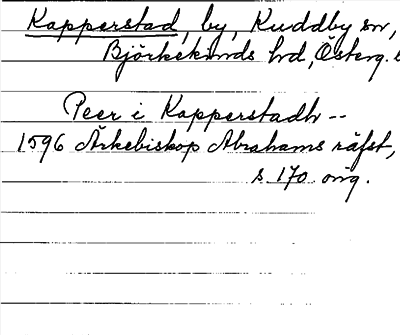 Kapperstad, by, Kuddby sn,
Björkekinds hd, Österg.
Peer i Kapperstadh --
1596 Ärkebiskop Abrahams räfst,
s. 170 orig.